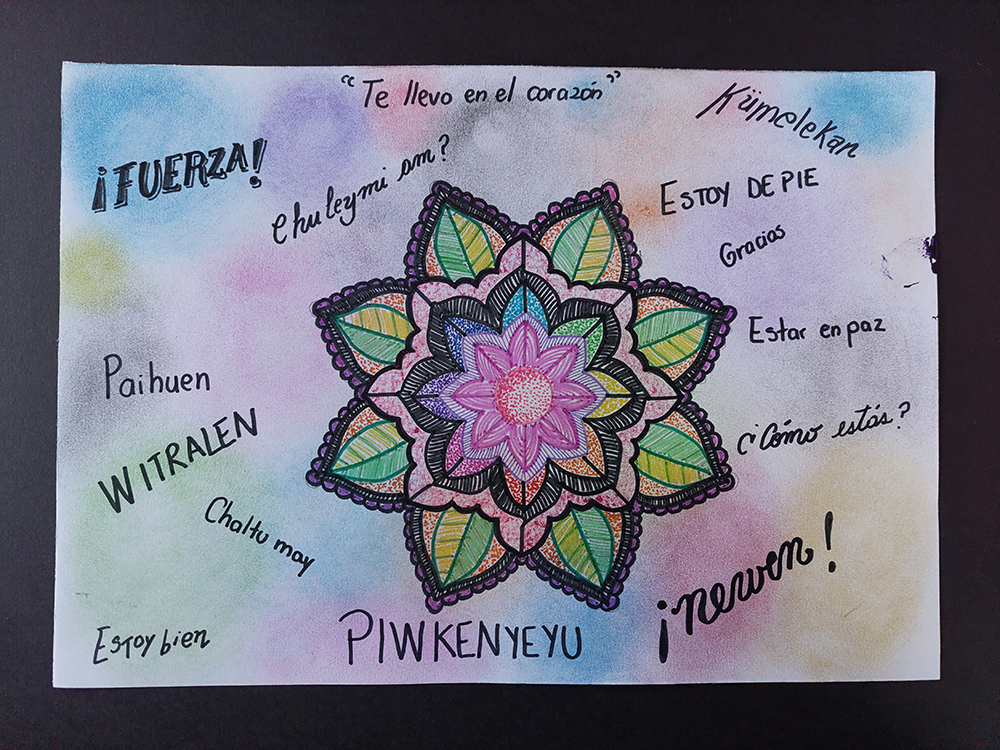 “Te llevo en el corazón”
Kümelekan
¡FUERZA!
Chuleymi am?
ESTOY DE PIE
Gracias
Estar en paz
Paihuen
¿Cómo estás?
WITRALEN
Chaltu may
¡newen!
ESTOY bien
PIWKENYEYU